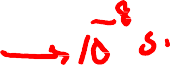 → 10⁻⁸ s.